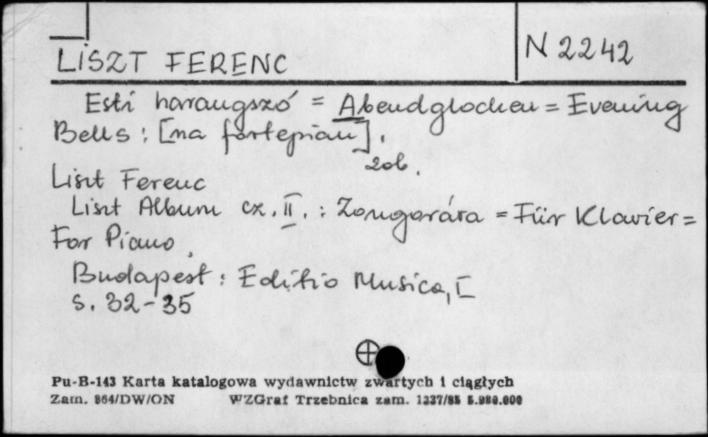 LISZT FERENC
N 2242
Esti harangszó = Abendglocken = Evening
Bells : [na fortepian].
zob.
Liszt Ferenc
Liszt Album cz. II. : Zongorára = Für Klavier =
For Piano.
Budapest : Editio Musica, [
s. 32-35
Pu-B-143 Karta katalogowa wydawnictw zwartych i ciągłych
Zam. 864/DW/ON WZGraf Trzebnica zam. 1237/85 5.980.000